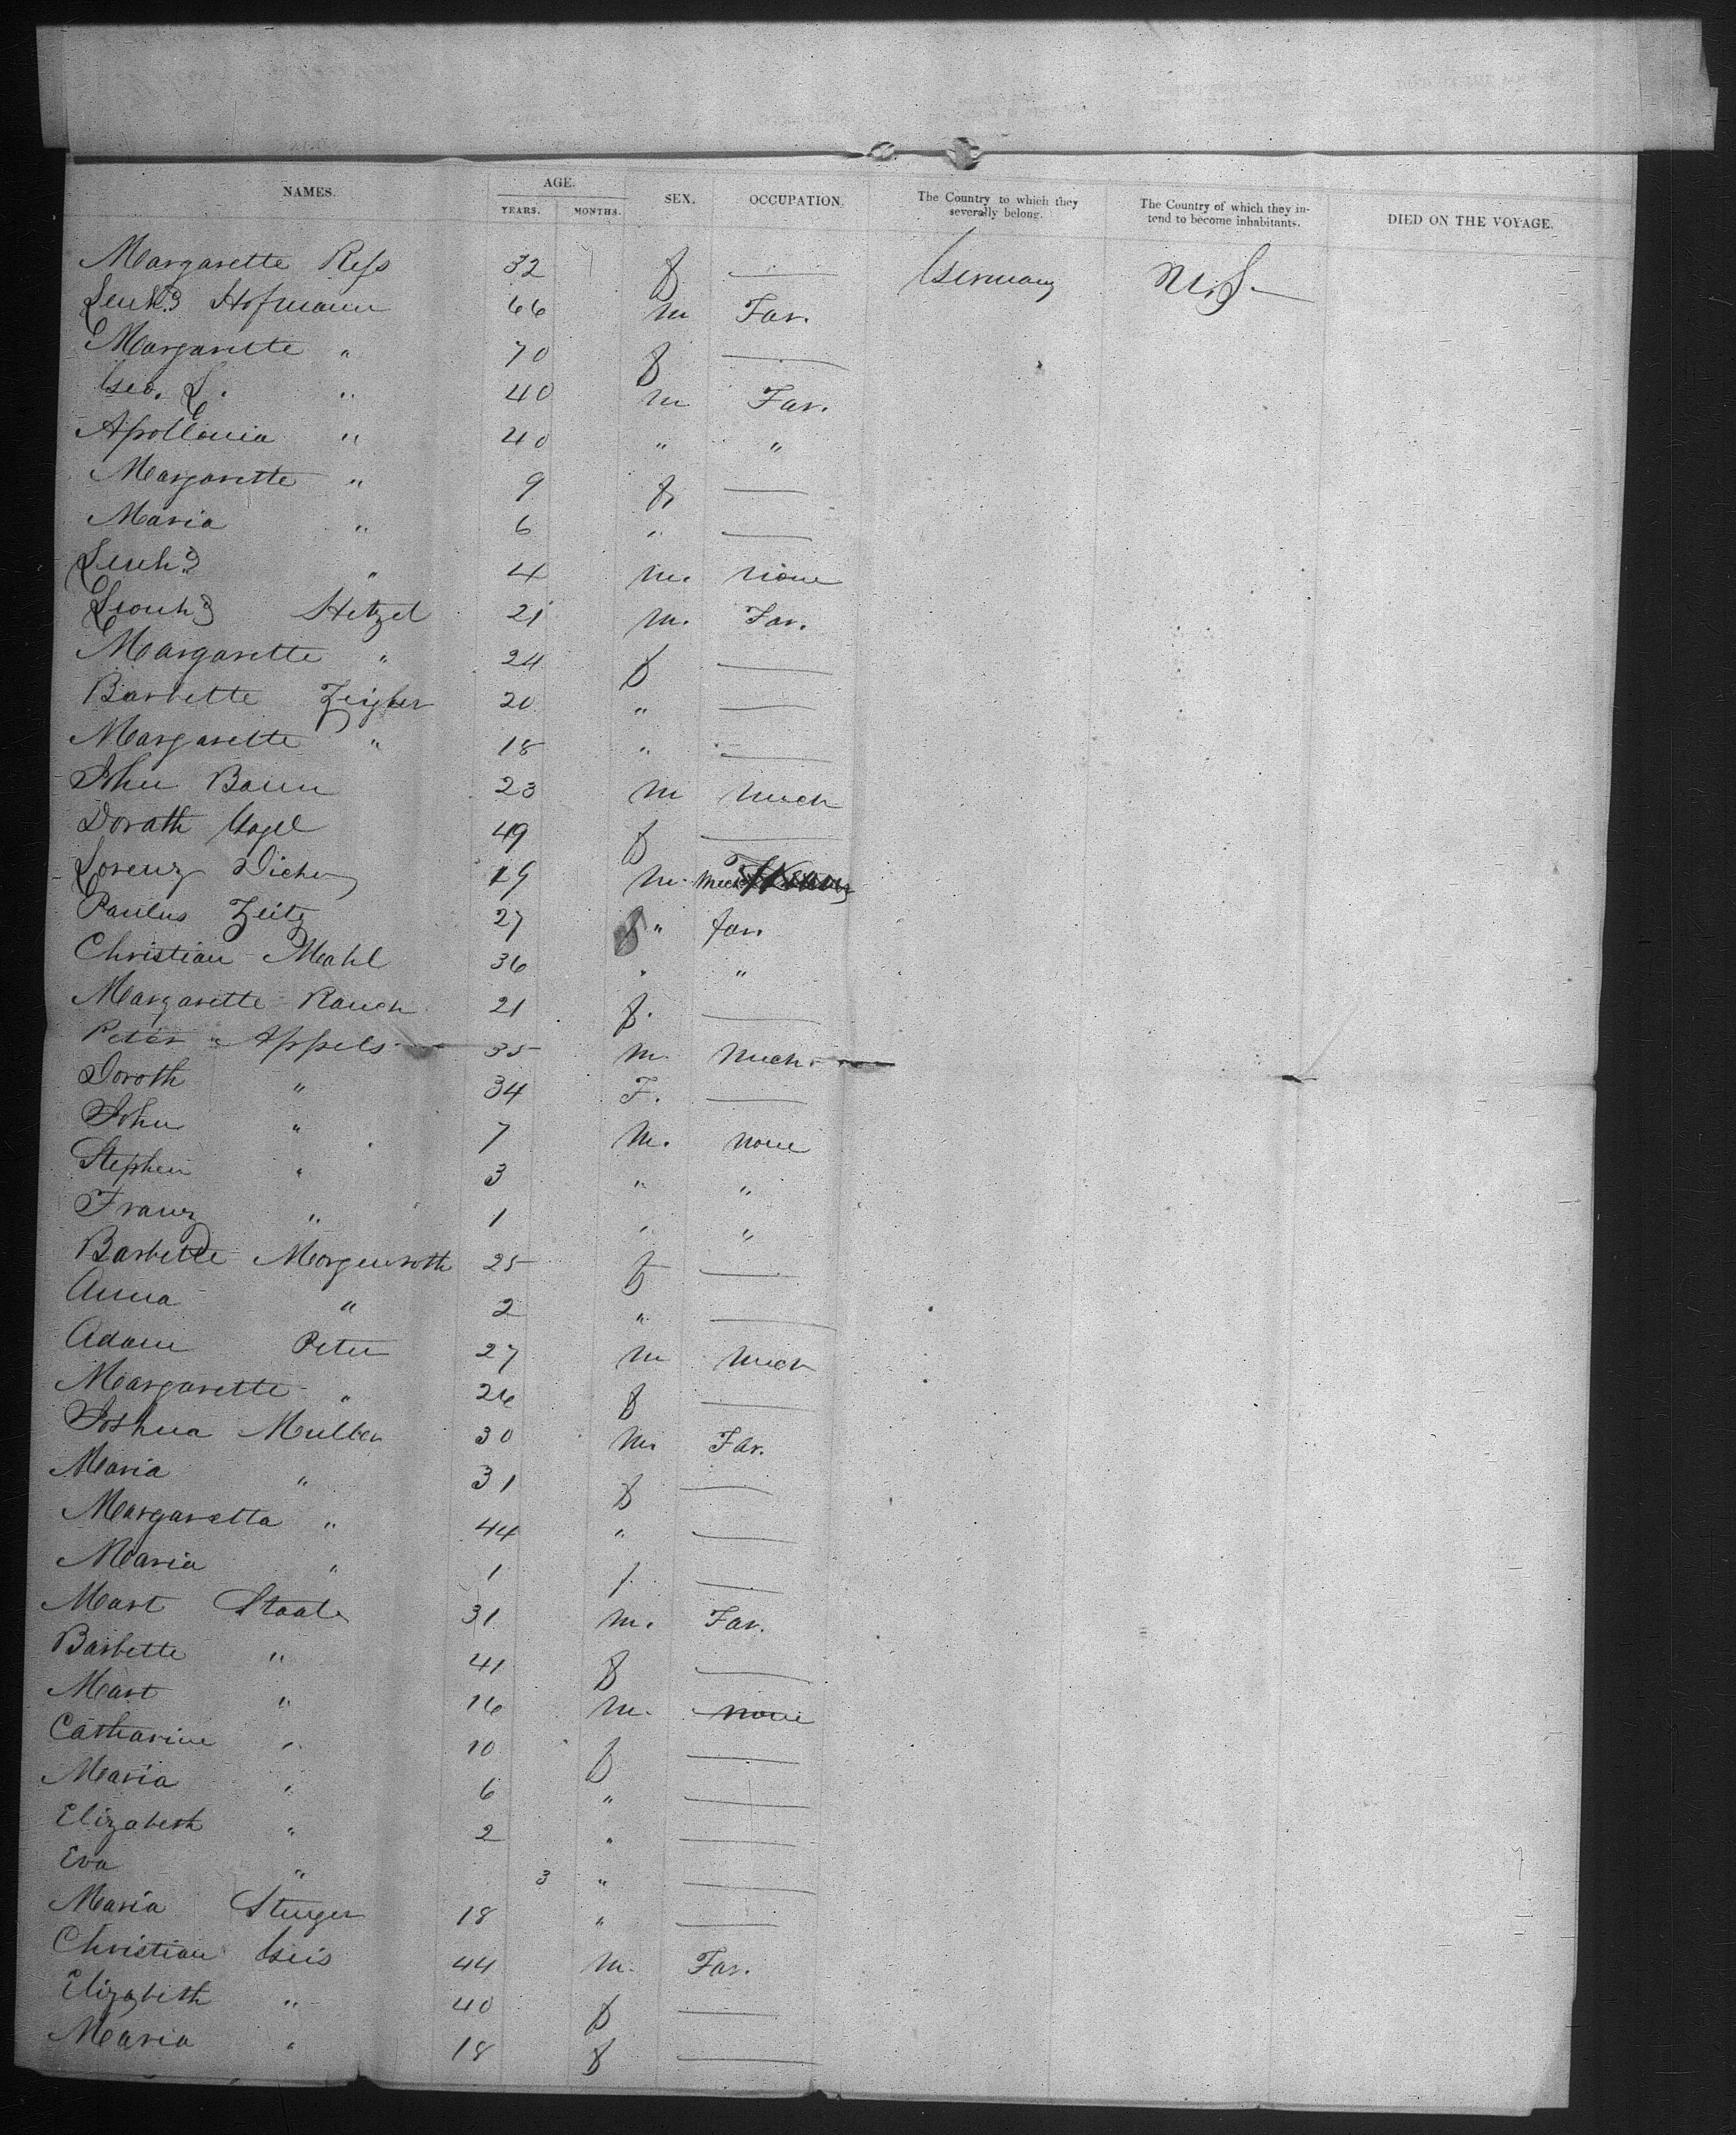 NAMES. AGE. YEARS. MONTHS. SEX. OCCUPATION. The Country to which they severally belong. The Country of which they intend to become inhabitants. DIED ON THE VOYAGE.
Margarette Reſs 32 f — Germany U.S.
Lenhd Hofmann 66 m Far.
Margarette " 70 f —
Geo. L. " 40 m Far.
Apollonia " 40 " "
Margarette " 9 f —
Maria " 6 " —
Lenhd " 4 m. none
Leonhd Hetzel 21 m. Far.
Margarette " 24 f —
Barbette Zeigler 20 " —
Margarette " 18 " —
John Baun 23 m Mech
Dorath Vogel 49 f —
Lorenz 19 m. Mech
Paulus Zeitz 27 " far.
Christian Mahl 36 " "
Margarette Rauch 21 f. —
Peter Appels 35 m. Mech.
Doroth " 34 F. —
John " 7 M. none
Stephen " 3 " "
Franz " 1 " "
Barbette Morgenroth 25 f —
Anna " 2 " —
Adam Peter 27 m Mech
Margarette " 26 f —
Joshua Muller 30 m Far.
Maria " 31 f —
Margaretta " 44 " —
Maria " 1 f. —
Mart Staal 31 m. Far.
Barbette " 41 f —
Mart " 16 m. none
Catharine " 10 f —
Maria " 6 " —
Elizabeth " 2 " —
Eva " 3 " —
Maria Stenger 18 " —
Christian Geis 44 m. Far.
Elizabeth " 40 f —
Maria " 18 f —